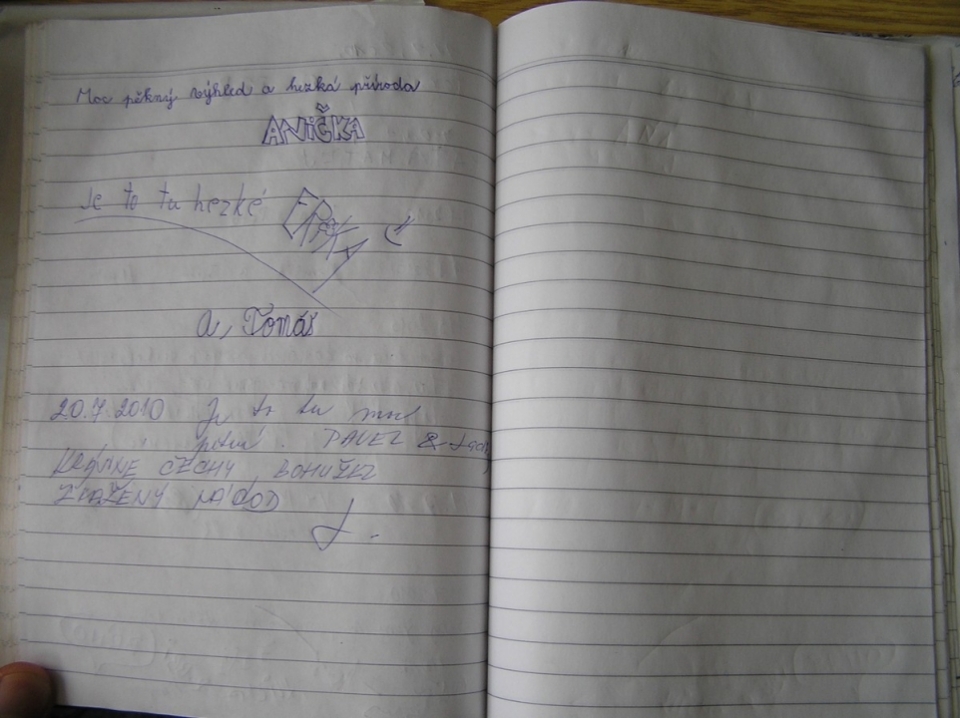 Moc pěkný výhled a hezká příroda
ANIČKA
Je to tu hezké
a, Tomáš
20.7.2010 Je to tu moc
pěkné. PAVEL &
KRÁSNÉ ČECHY BOHUŽEL
ZKAŽENÝ NÁROD